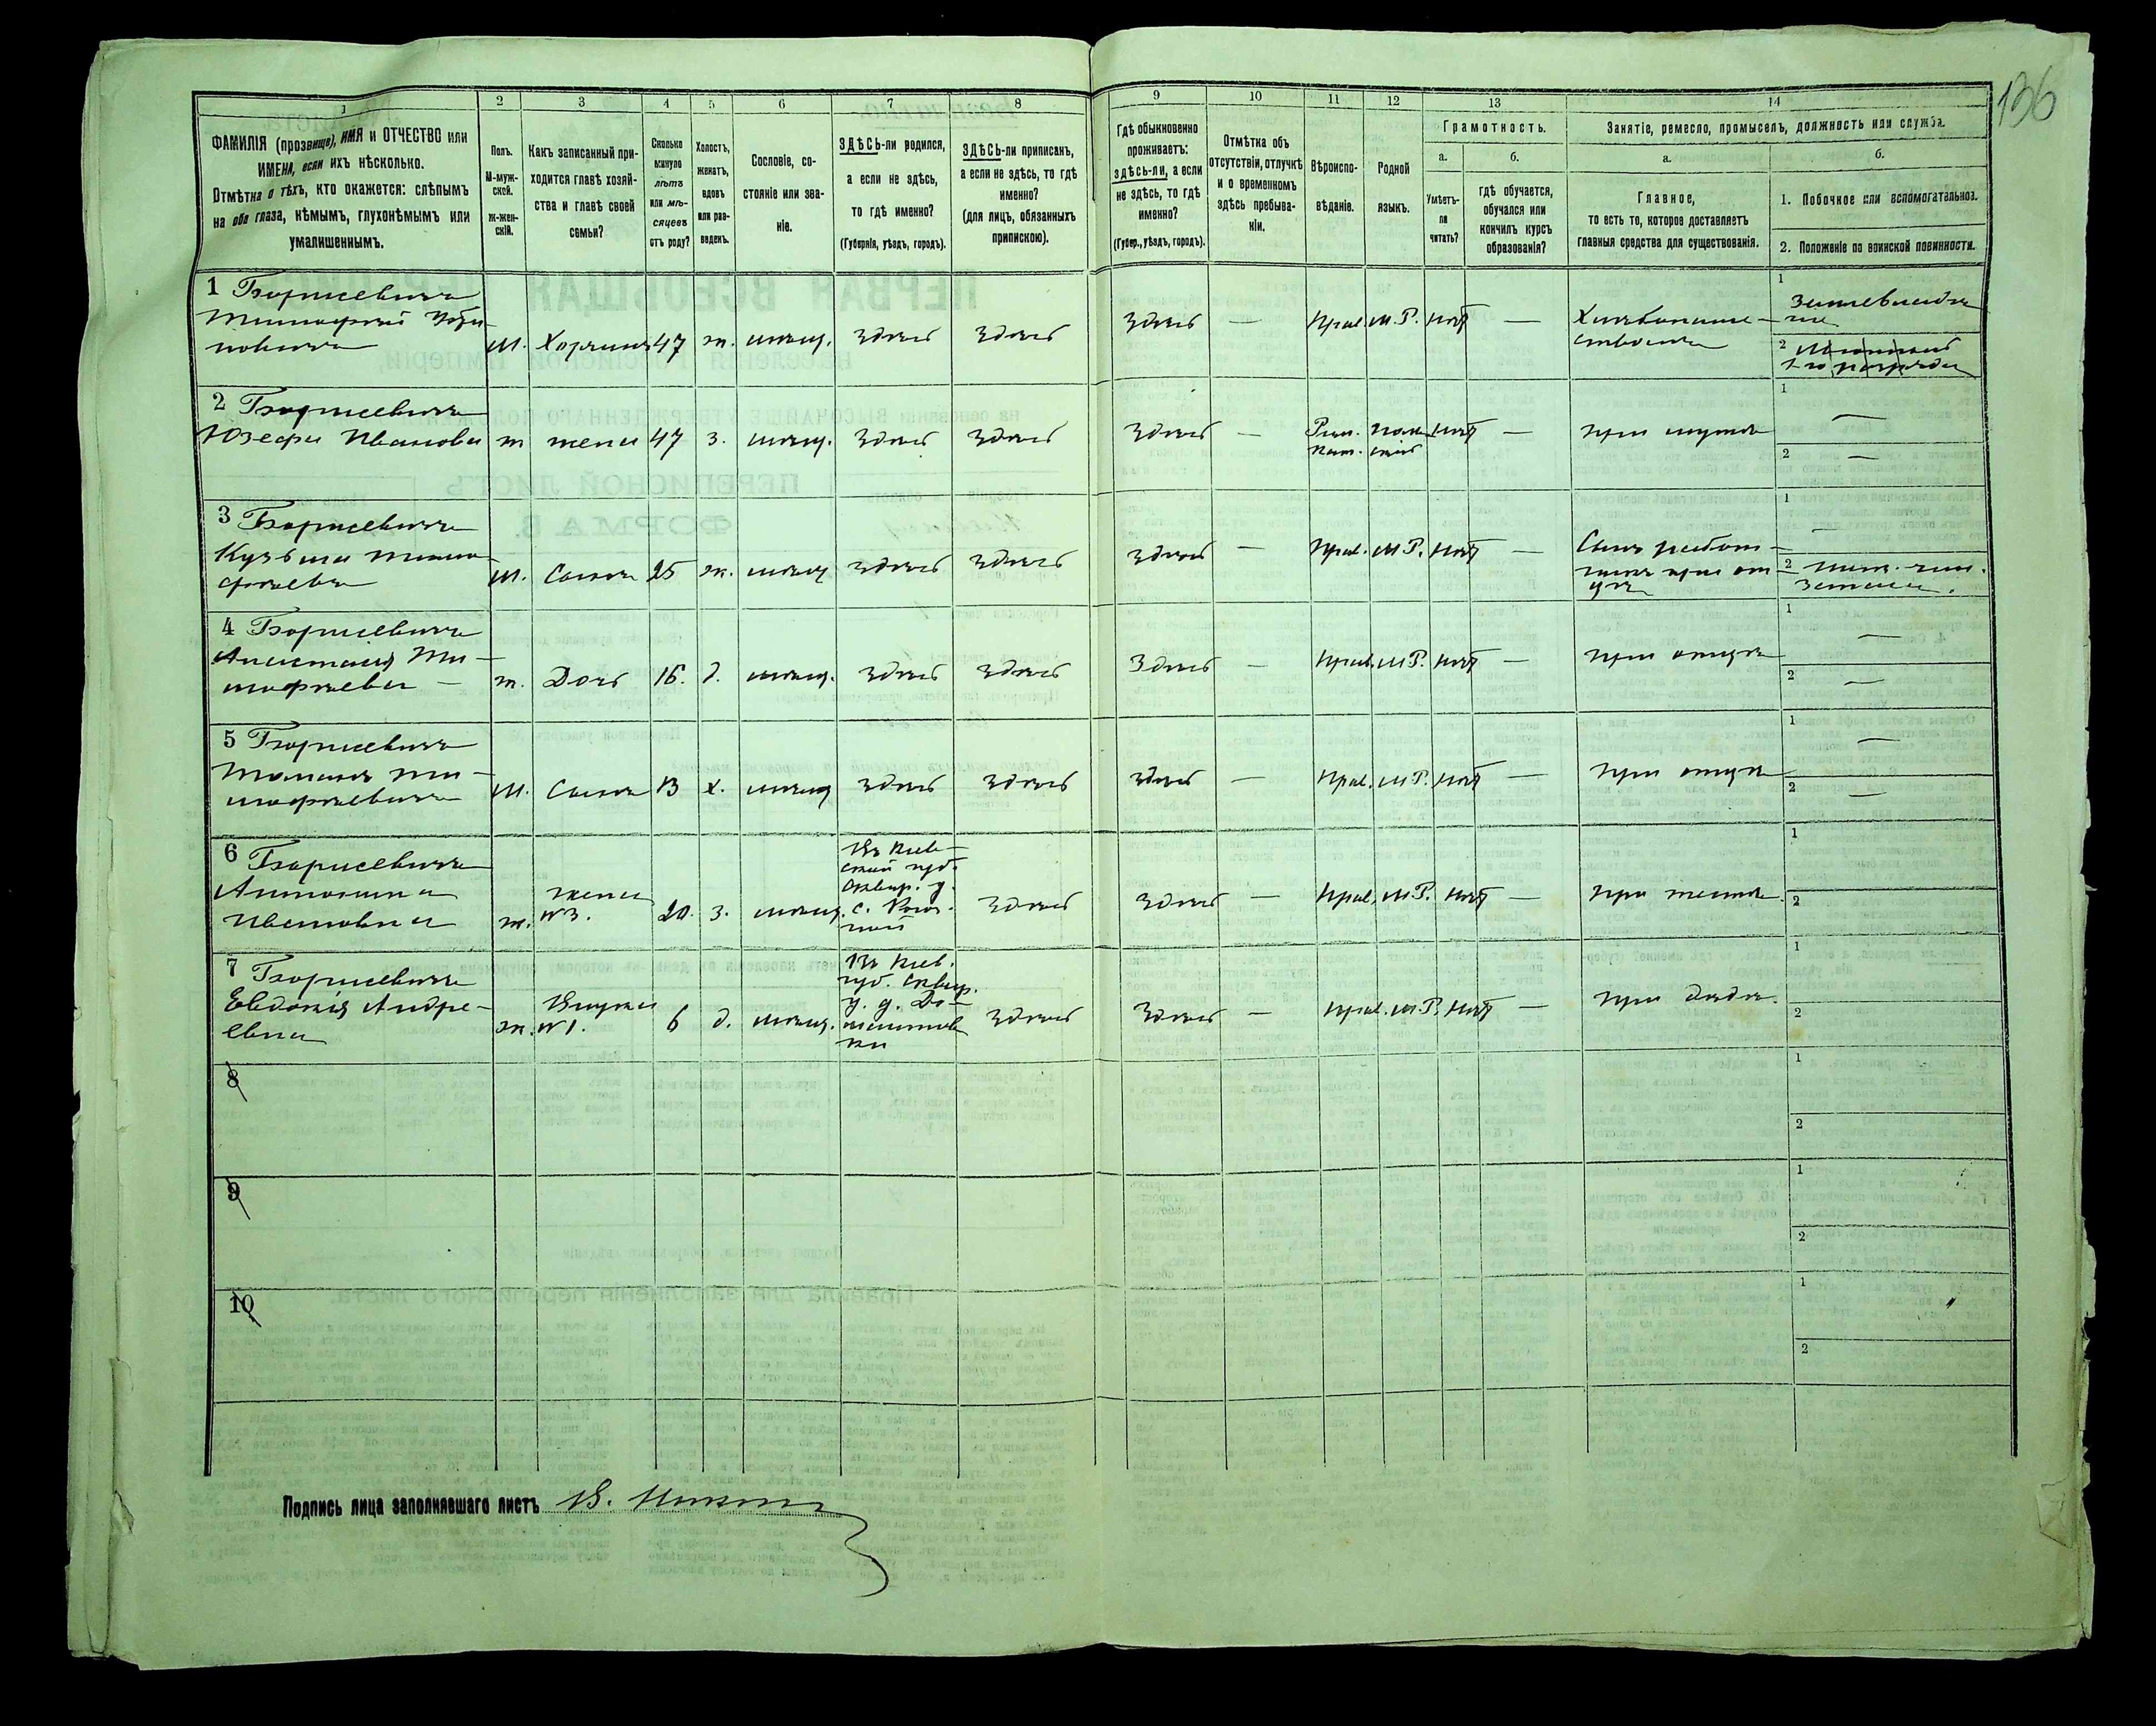 136
1 2 3 4 5 6 7 8 9 10 11 12 13 14
ФАМИЛІЯ (прозвище), ИМЯ и ОТЧЕСТВО или
ИМЕНА, если ихъ нѣсколько.
Отмѣтка о тѣхъ, кто окажется: слѣпымъ
на оба глаза, нѣмымъ, глухонѣмымъ или
умалишеннымъ.
Полъ.
М-муж-
ской.
ж-жен-
скій.
Какъ записанный при-
ходится главѣ хозяй-
ства и главѣ своей
семьи?
Сколько
минуло
лѣтъ
или мѣ-
сяцевъ
отъ роду?
Холостъ,
женатъ,
вдовъ
или раз-
веденъ.
Сословіе, со-
стояніе или зва-
ніе.
ЗДѢСЬ-ли родился,
а если не здѣсь,
то гдѣ именно?
(Губернія, уѣздъ, городъ).
ЗДѢСЬ-ли приписанъ,
а если не здѣсь, то гдѣ
именно?
(для лицъ, обязанныхъ
припискою).
Гдѣ обыкновенно
проживаетъ:
здѣсь-ли, а если
не здѣсь, то гдѣ
именно?
(Губер., уѣздъ, городъ).
Отмѣтка объ
отсутствіи, отлучкѣ
и о временномъ
здѣсь пребыва-
ніи.
Вѣроиспо-
вѣданіе.
Родной
языкъ.
Грамотность.
а.
Умѣетъ-
ли
читать?
б.
гдѣ обучается,
обучался или
кончилъ курсъ
образованія?
Занятіе, ремесло, промыселъ, должность или служба.
а.
Главное,
то есть то, которое доставляетъ
главныя средства для существованія.
б.
1. Побочное или вспомогательное.
2. Положеніе по воинской повинности.
1 Борисевичъ
Тимофей
М. Хозяинъ 47 ж. мѣщ. здѣсь здѣсь здѣсь — Прав. М.Р. нѣтъ —
1
2
2 Борисевичъ
Юзефа Иванова ж жена 47 з. мѣщ. здѣсь здѣсь здѣсь — Рим. Поль- нѣтъ — при мужѣ
Кат. скій
1 —
2 —
3 Борисевичъ
Кузьма Тимо-
фѣевъ М. Сынъ 25 ж. мѣщ здѣсь здѣсь здѣсь — Прав. М.Р. нѣтъ —
Сынъ работ-
никъ при от-
цѣ
1 —
2
4 Борисевичъ
Анастасія Ти-
мофѣева — ж. Дочь 16. д. мѣщ. здѣсь здѣсь здѣсь — Прав. М.Р. нѣтъ — при отцѣ
1 —
2 —
5 Борисевичъ
Ти-
мофѣевичъ М. Сынъ 13 х. мѣщ здѣсь здѣсь здѣсь — Прав. М.Р. нѣтъ — при отцѣ
1 —
2 —
6 Борисевичъ
Антонина
Ивановна ж. жена №3. 20. з. мѣщ.
Въ Кіев-
ской губ.
Сквир. у.
с.
здѣсь здѣсь — Прав. М.Р. нѣтъ —
1
2
7 Борисевичъ
Евдокія Андре-
евна ж. Внучка №1. 6 д. мѣщ.
Въ Кіев.
губ. Сквир.
у. д.
здѣсь здѣсь — прав. М.Р. нѣтъ — при дѣдѣ.
1
2
8
1
2
9
1
2
10
1
2
Подпись лица заполнявшаго листъ